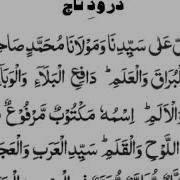 درودِ تاج
عَلٰى سَيِّدِنَا وَمَوْلَانَا مُحَمَّدٍ صَاحِ
الْبُرَاقِ وَالْعَلَمِ ؕ دَافِعِ الْبَلَاۤءِ وَالْوَبَا
وَالْاَلَمِ ؕ اِسْمُهٗ مَكْتُوْبٌ مَّرْفُوْعٌ
اللَّوْحِ وَالْقَلَمِ ؕ سَيِّدِ الْعَرَبِ وَالْعَجَ